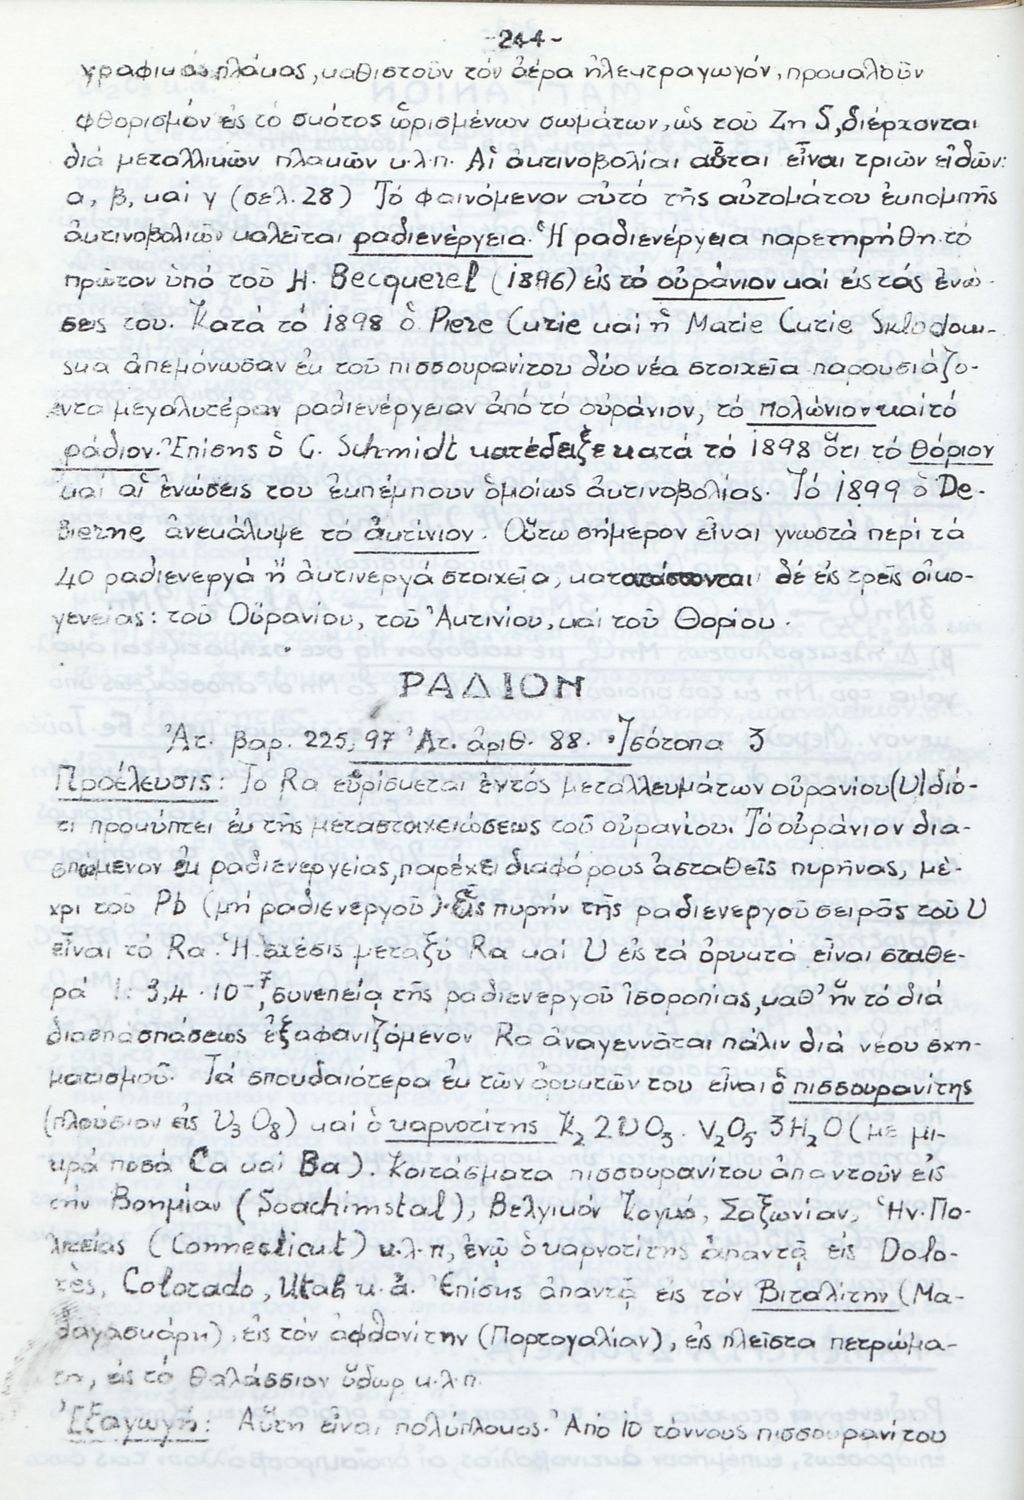 -244-
γραφικάς πλάκας, καθιστοῦν τόν ἀέρα ἠλεκτραγωγόν, προκαλοῦν
φθορισμόν εἰς τό σκότος ὡρισμένων σωμάτων, ὡς τοῦ Zn S, διέρχονται
διά μεταλλικῶν πλακῶν κ.λ.π. Αἱ ἀκτινοβολίαι αὗται εἶναι τριῶν εἰδῶν:
α, β, καί γ (σελ. 28) Τό φαινόμενον αὐτό τῆς αὐτομάτου ἐκπομπῆς
ἀκτινοβολιῶν καλεῖται ραδιενέργεια. Ἡ ραδιενέργεια παρετηρήθη τό
πρῶτον ὑπό τοῦ H. Becquerel (1896) εἰς τό οὐράνιον καί εἰς τάς ἑνώ-
σεις του. Κατά τό 1898 ὁ Piere Curie καί ἡ Marie Curie Sklodow-
ska ἀπεμόνωσαν ἐκ τοῦ πισσουρανίτου δύο νέα στοιχεῖα παρουσιάζο-
ντα μεγαλυτέραν ραδιενέργειαν ἀπό τό οὐράνιον, τό πολώνιον καί τό
ράδιον. Ἐπίσης ὁ C. Schmidt κατέδειξε κατά τό 1898 ὅτι τό θόριον
καί αἱ ἑνώσεις του ἐκπέμπουν ὁμοίως ἀκτινοβολίας. Τό 1899 ὁ De-
Bierne ἀνεκάλυψε τό ἀκτίνιον. Οὕτω σήμερον εἶναι γνωστά περί τά
40 ραδιενεργά ἤ ἀκτινεργά στοιχεῖα, κατατάσσονται δέ εἰς τρεῖς οἰκο-
γενείας: τοῦ Οὐρανίου, τοῦ Ἀκτινίου, καί τοῦ Θορίου.
ΡΑΔΙΟΝ
Ἀτ. βαρ. 225,97 Ἀτ. ἀριθ. 88. Ἰσότοπα 3
Προέλευσις: Το Ra εὑρίσκεται ἐντός μεταλλευμάτων οὐρανίου (U) διό-
τι προκύπτει ἐκ τῆς μεταστοιχειώσεως τοῦ οὐρανίου. Τό οὐράνιον δια-
σπώμενον ἐκ ραδιενεργείας, παρέχει διαφόρους ἀσταθεῖς πυρῆνας, μέ-
χρι τοῦ Pb (μή ραδιενεργοῦ). Εἷς πυρήν τῆς ραδιενεργοῦ σειρᾶς τοῦ U
εἶναι τό Ra. Ἡ σχέσις μεταξύ Ra καί U εἰς τά ὀρυκτά εἶναι σταθε-
ρά 1: 3,4 · 10⁻⁷, συνεπείᾳ τῆς ραδιενεργοῦ ἰσοροπίας, καθ' ἥν τό διά
διασπασπάσεως ἐξαφανιζόμενον Ra ἀναγεννᾶται πάλιν διά νέου σχη-
ματισμοῦ. Τά σπουδαιότερα ἐκ τῶν ὀρυκτῶν του εἶναι ὁ πισσουρανίτης
(πλούσιον εἰς U₃ O₈) καί ὁ καρνοτίτης K₂ 2UO₃. V₂O₅ 3H₂O (με μι-
κρά ποσά Ca καί Ba). Κοιτάσματα πισσουρανίτου ἀπαντοῦν εἰς
τήν Βοημίαν (Soachimstal), Βελγικόν Κογκό, Σαξωνίαν, Ἡν. Πο-
λιτείας (Connecticut) κ.λ.π, ἐνῷ ὁ καρνοτίτης ἀπαντᾷ εἰς Dolo-
rès, Colorado, Utah κ.ἄ. Ἐπίσης ἀπαντᾷ εἰς τόν Βιταλίτην (Μα-
δαγασκάρη), εἰς τόν ἀφθονίτην (Πορτογαλίαν), εἰς πλεῖστα πετρώμα-
τα, εἰς τό θαλάσσιον ὕδωρ κ.λ.π.
Ἐξαγωγή: Αὕτη εἶναι πολύπλοκος. Ἀπό 10 τόννους πισσουρανίτου